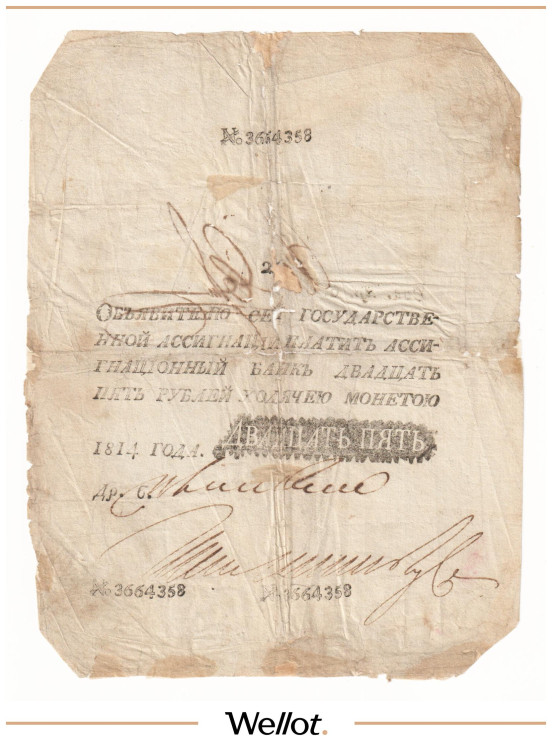 № 3664358
ОБЪЯВИТЕЛЮ СЕЙ ГОСУДАРСТВЕ-
ННОЙ АССИГНАЦІИ ПЛАТИТЪ АССИ-
ГНАЦІОННЫЙ БАНКЪ ДВАДЦАТЬ
ПЯТЬ РУБЛЕЙ ХОДЯЧЕЮ МОНЕТОЮ
1814 ГОДА. ДВАДЦАТЬ ПЯТЬ
№ 3664358 № 3664358
Wellot.